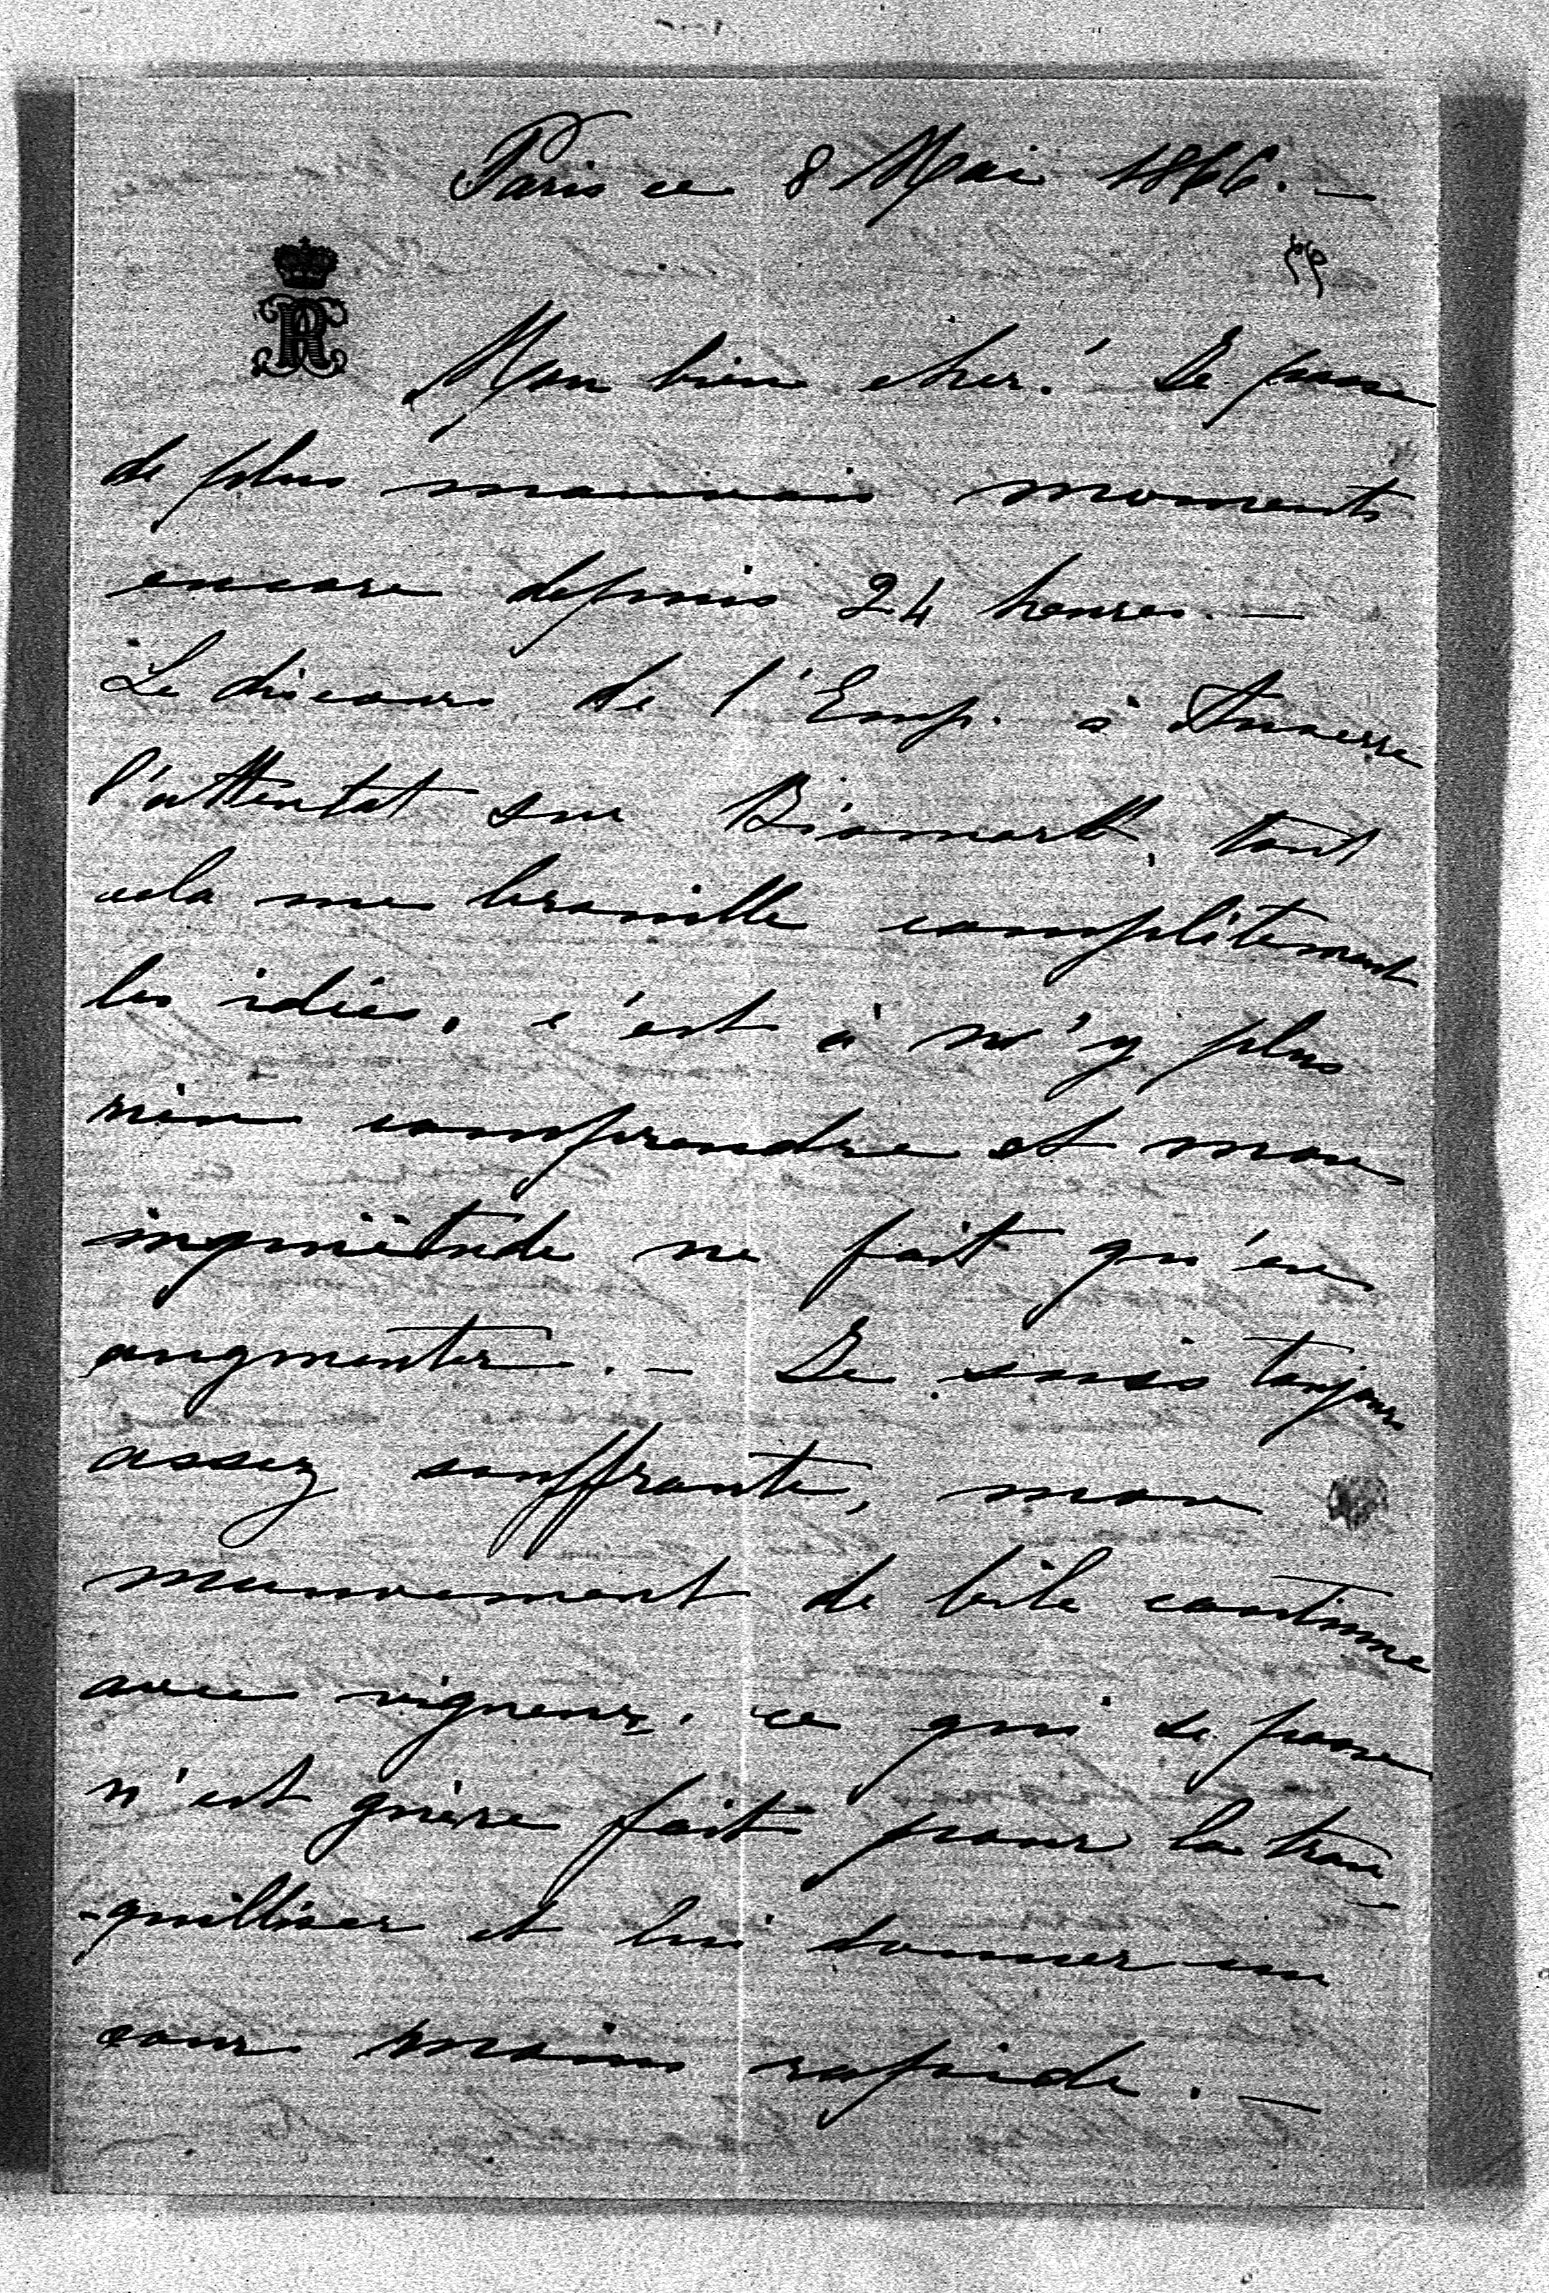 Paris ce 8 Mai 1866. —
Mon bien cher! Je passe
de plus mauvais moments
encore depuis 24 heures. —
Le discours de l'Emp. à Auxerre
l'attentat sur Bismark, tout
cela me brouille complètement
les idées, c'est à n'y plus
rien comprendre et mon
inquiètude ne fait qu'en
augmenter. — Je suis toujours
assez souffrante, mon
mouvement de bile continue
avec vigueur, ce qui se passe
n'est guère fait pour la tran
-quilliser et lui donner un
cour moins rapide. —